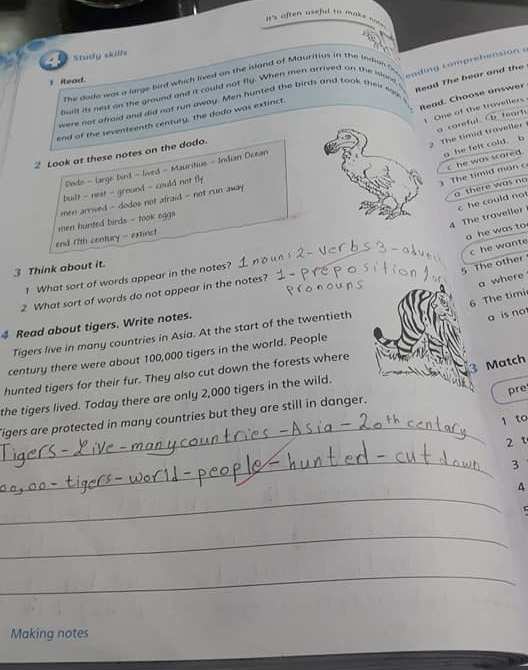 It's often useful to make notes
4 Study skills
1 Read.
The dodo was a large bird which lived on the island of Mauritius in the Indian
built its nest on the ground and it could not fly. When men arrived on the island
were not afraid and did not run away. Men hunted the birds and took their eggs
end of the seventeenth century, the dodo was extinct.
2 Look at these notes on the dodo.
Dodo – large bird – lived – Mauritius – Indian Ocean
built – nest – ground – could not fly
men arrived – dodos not afraid – not run away
men hunted birds – took eggs
end 17th century – extinct
3 Think about it.
1 What sort of words appear in the notes? 1 nouns 2- verbs 3-
2 What sort of words do not appear in the notes? 1-preposition
pronouns
4 Read about tigers. Write notes.
Tigers live in many countries in Asia. At the start of the twentieth
century there were about 100,000 tigers in the world. People
hunted tigers for their fur. They also cut down the forests where
the tigers lived. Today there are only 2,000 tigers in the wild.
Tigers are protected in many countries but they are still in danger.
Tigers - Live - many countries - Asia - 20th centary
00,00 - tigers - world - people - hunted - cut down
Making notes
reading comprehension
Read The bear and the
Read. Choose answer
1 One of the travellers
a careful. b fearf
2 The timid traveller
a he felt cold. b
c he was scared.
3 The timid man c
a there was no
c he could not
4 The traveller
a he was to
c he wante
5 The other
a where
6 The timi
a is not
3 Match
pre
1 to
2 t
3
4
5